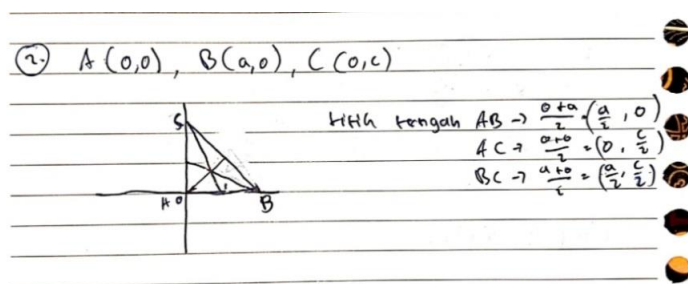 2. A (0,0) , B(a,0) , C (0,c)
C
A 0
B
titik tengah AB → 0+a/2 = (a/2 , 0)
AC → 0+0/2 = (0 , c/2)
BC → a+0/2 = (a/2 , c/2)